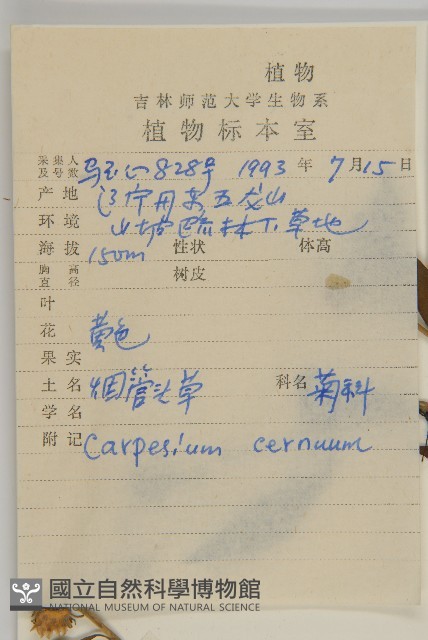 植物
吉林师范大学生物系
植物标本室
采集人及号数 马玉心828号 1993年7月15日
产地 辽宁丹东五龙山
环境 山坡疏林下草地
海拔 150m 性状 体高
胸高直径 树皮
叶
花 黄色
果实
土名 烟管头草 科名 菊科
学名
附记 Carpesium cernuum
國立自然科學博物館
NATIONAL MUSEUM OF NATURAL SCIENCE